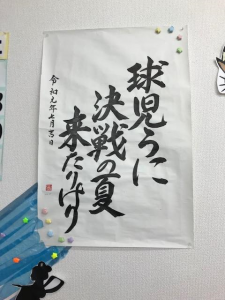 球児らに
決戦の夏
来たりけり
令和元年七月吉日